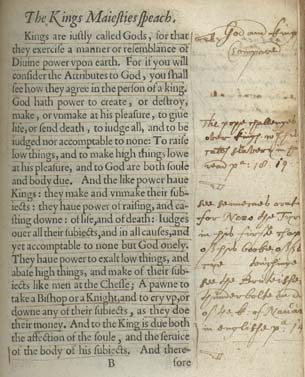 The Kings Maiesties speach.
Kings are iustly called Gods, for that
they exercise a manner or resemblance of
Diuine power vpon earth. For if you will
consider the Attributes to God, you shall
see how they agree in the person of a king.
God hath power to create, or destroy,
make, or vnmake at his pleasure, to giue
life, or send death, to iudge all, and to be
iudged nor accomptable to none: To raise
low things, and to make high things lowe
at his pleasure, and to God are both soule
and body due. And the like power haue
Kings: they make and vnmake their sub-
iects: they haue power of raising, and ca-
sting downe: of life, and of death: Iudges
ouer all their subiects, and in all causes, and
yet accomptable to none but God onely. 
They haue power to exalt low things, and
abase high things, and make of their sub-
iects like men at the Chesse; A pawne to
take a Bishop or a Knight, and to cry vp, or
downe any of their subiects, as they doe
their money. And to the King is due both
the affection of the soule, and the seruice
of the body of his subiects. And there-
B fore
God
The pope
ouer
read pa: 18. 19
for Nero the
in his first
of his booke
see the
thunderbolt
of the K. of Nauar
in englishe p: 14